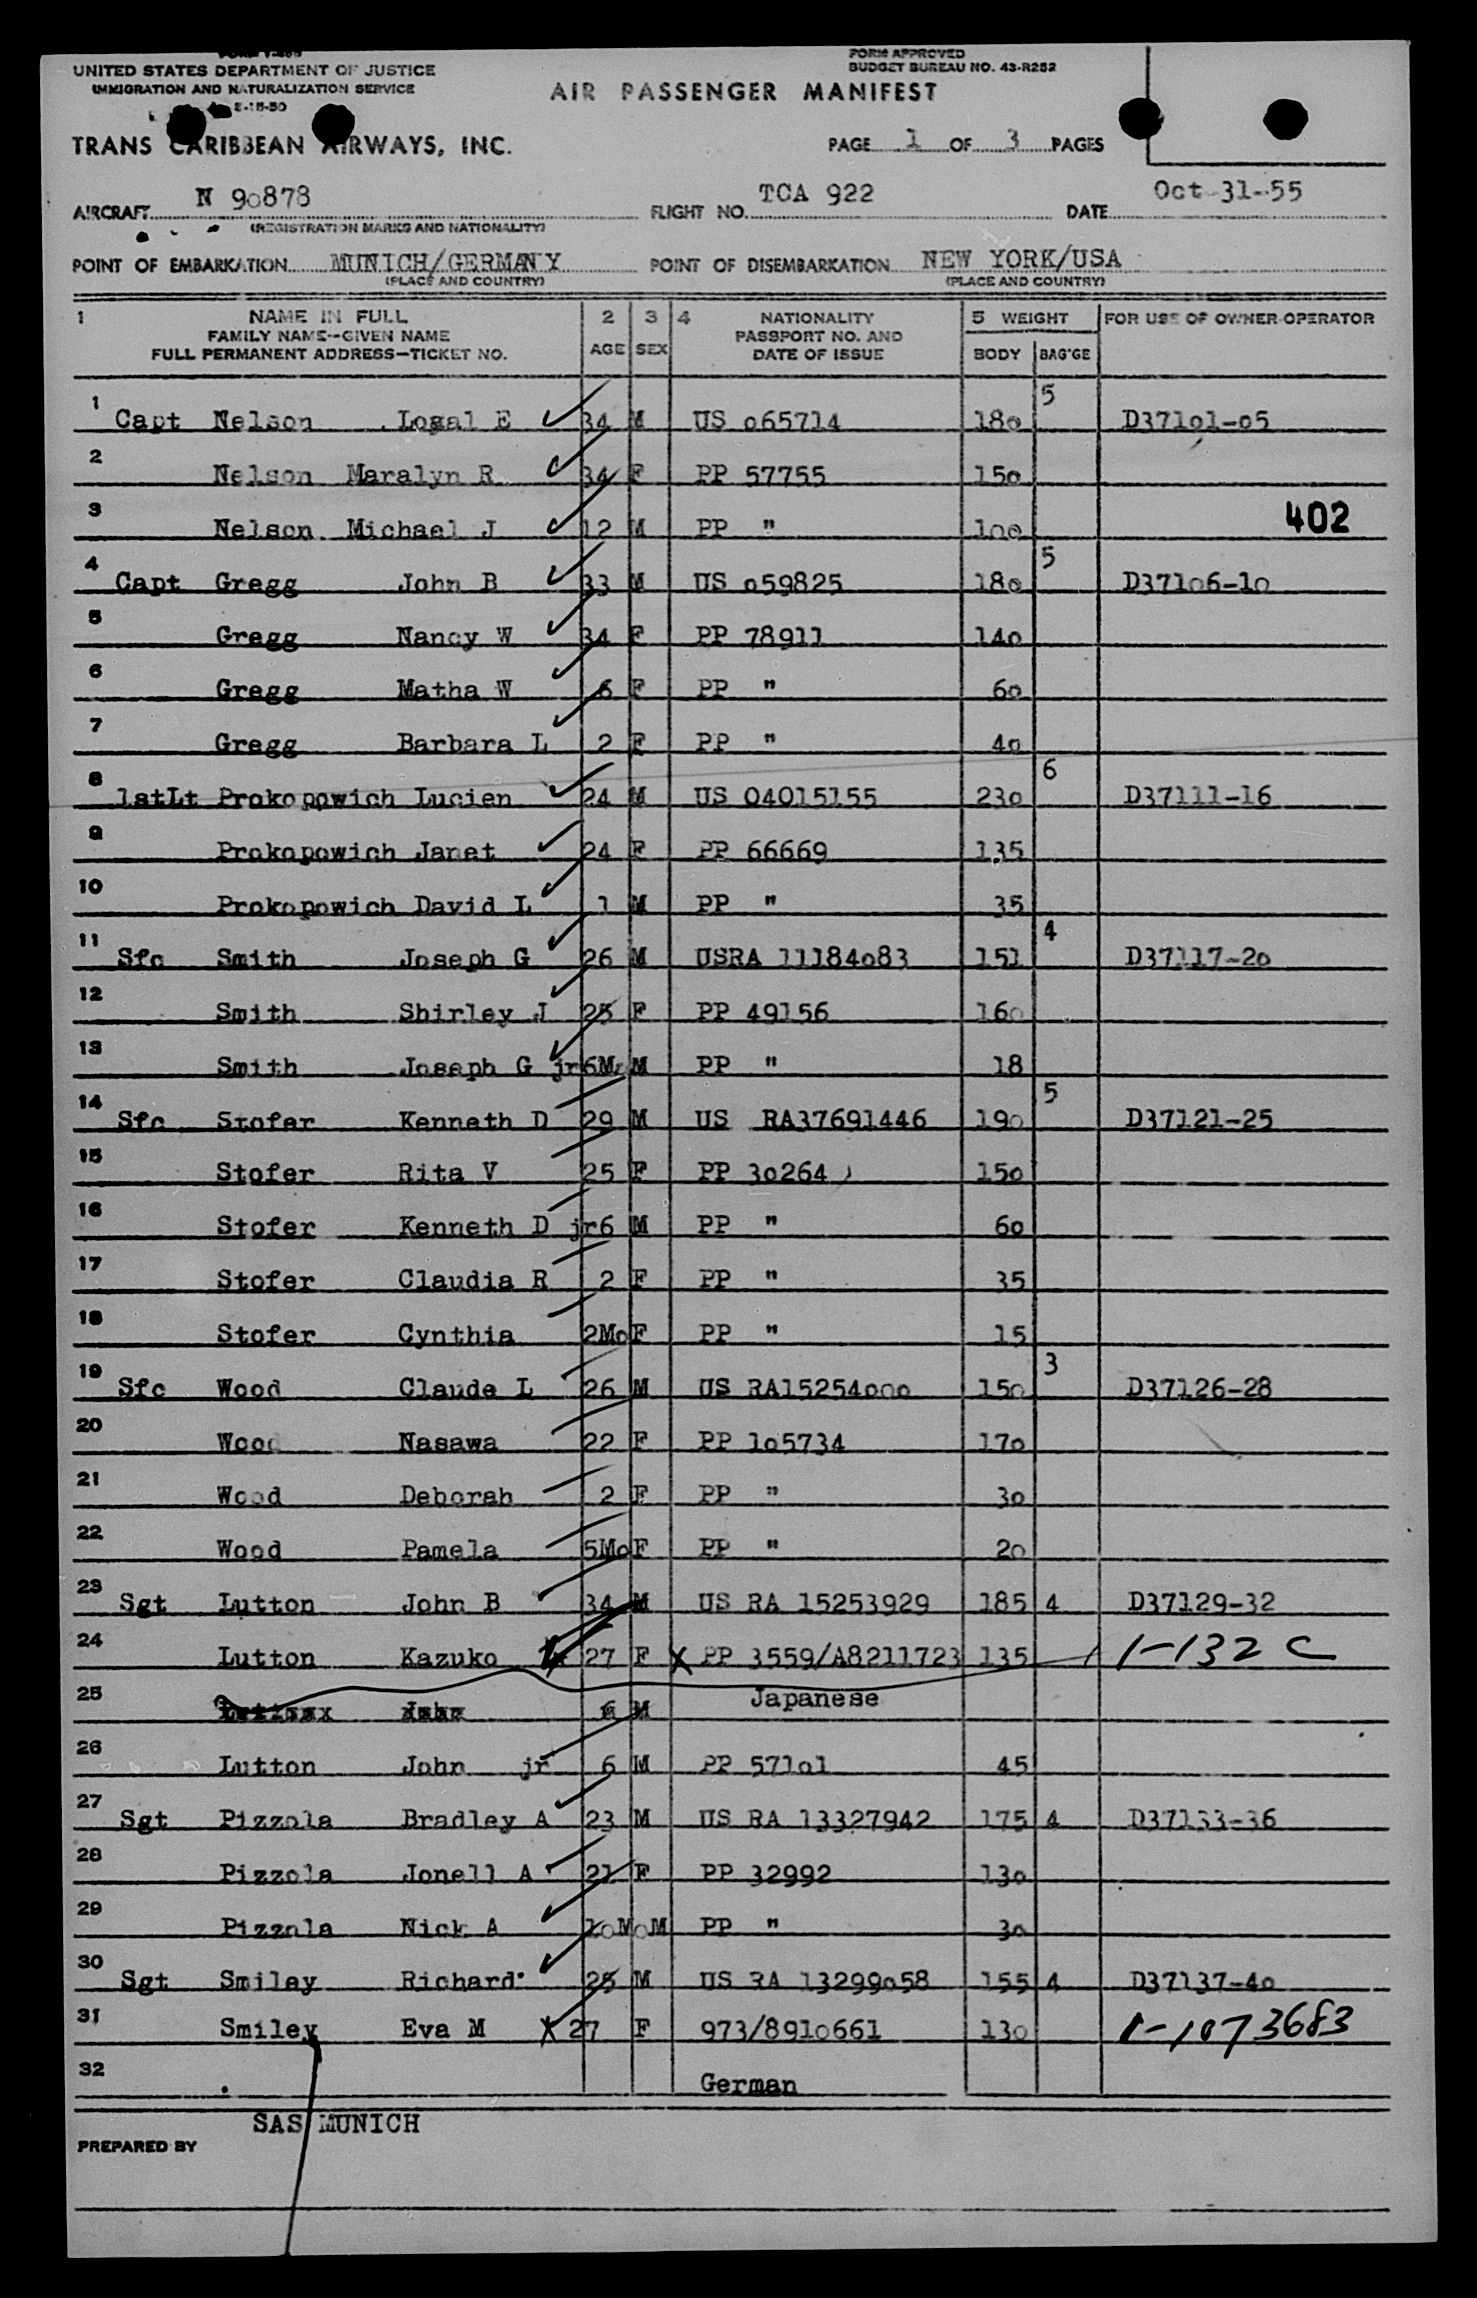 FORM APPROVED
UNITED STATES DEPARTMENT OF JUSTICE BUDGET BUREAU NO. 43-R252
IMMIGRATION AND NATURALIZATION SERVICE AIR PASSENGER MANIFEST
2-15-50
TRANS CARIBBEAN AIRWAYS, INC. PAGE 1 OF 3 PAGES
AIRCRAFT N 90878 FLIGHT NO. TCA 922 DATE Oct-31-55
(REGISTRATION MARKS AND NATIONALITY)
POINT OF EMBARKATION MUNICH/GERMANY POINT OF DISEMBARKATION NEW YORK/USA
(PLACE AND COUNTRY) (PLACE AND COUNTRY)
1 NAME IN FULL 2 3 4 NATIONALITY 5 WEIGHT FOR USE OF OWNER-OPERATOR
FAMILY NAME--GIVEN NAME AGE SEX PASSPORT NO. AND
FULL PERMANENT ADDRESS—TICKET NO. DATE OF ISSUE BODY BAG'GE
1 Capt Nelson Logal E 34 M US 065714 180 5 D37101-05
2 Nelson Maralyn R 34 F PP 57755 150
3 Nelson Michael J 12 M PP " 100 402
4 Capt Gregg John B 33 M US 059825 180 5 D37106-10
5 Gregg Nancy W 34 F PP 78911 140
6 Gregg Matha W 6 F PP " 60
7 Gregg Barbara L 2 F PP " 40
8 1stLt Prokopowich Lucien 24 M US 04015155 230 6 D37111-16
9 Prokopowich Janet 24 F PP 66669 135
10 Prokopowich David L 1 M PP " 35
11 Sfc Smith Joseph G 26 M USRA 11184083 151 4 D37117-20
12 Smith Shirley J 25 F PP 49156 160
13 Smith Joseph G jr 6Mo M PP " 18
14 Sfc Stofer Kenneth D 29 M US RA37691446 190 5 D37121-25
15 Stofer Rita V 25 F PP 30264 150
16 Stofer Kenneth D jr 6 M PP " 60
17 Stofer Claudia R 2 F PP " 35
18 Stofer Cynthia 2Mo F PP " 15
19 Sfc Wood Claude L 26 M US RA15254000 150 3 D37126-28
20 Wood Nasawa 22 F PP 105734 170
21 Wood Deborah 2 F PP " 30
22 Wood Pamela 5Mo F PP " 20
23 Sgt Lutton John B 34 M US RA 15253929 185 4 D37129-32
24 Lutton Kazuko 27 F X PP 3559/A8211723 135 1-132 C
25 6 M Japanese
26 Lutton John jr 6 M PP 57101 45
27 Sgt Pizzola Bradley A 23 M US RA 13327942 175 4 D37133-36
28 Pizzola Jonell A 21 F PP 32992 130
29 Pizzola Nick A 10Mo M PP " 30
30 Sgt Smiley Richard 25 M US RA 13299058 155 4 D37137-40
31 Smiley Eva M X 27 F 973/8910661 130 1-1073683
32 German
SAS MUNICH
PREPARED BY